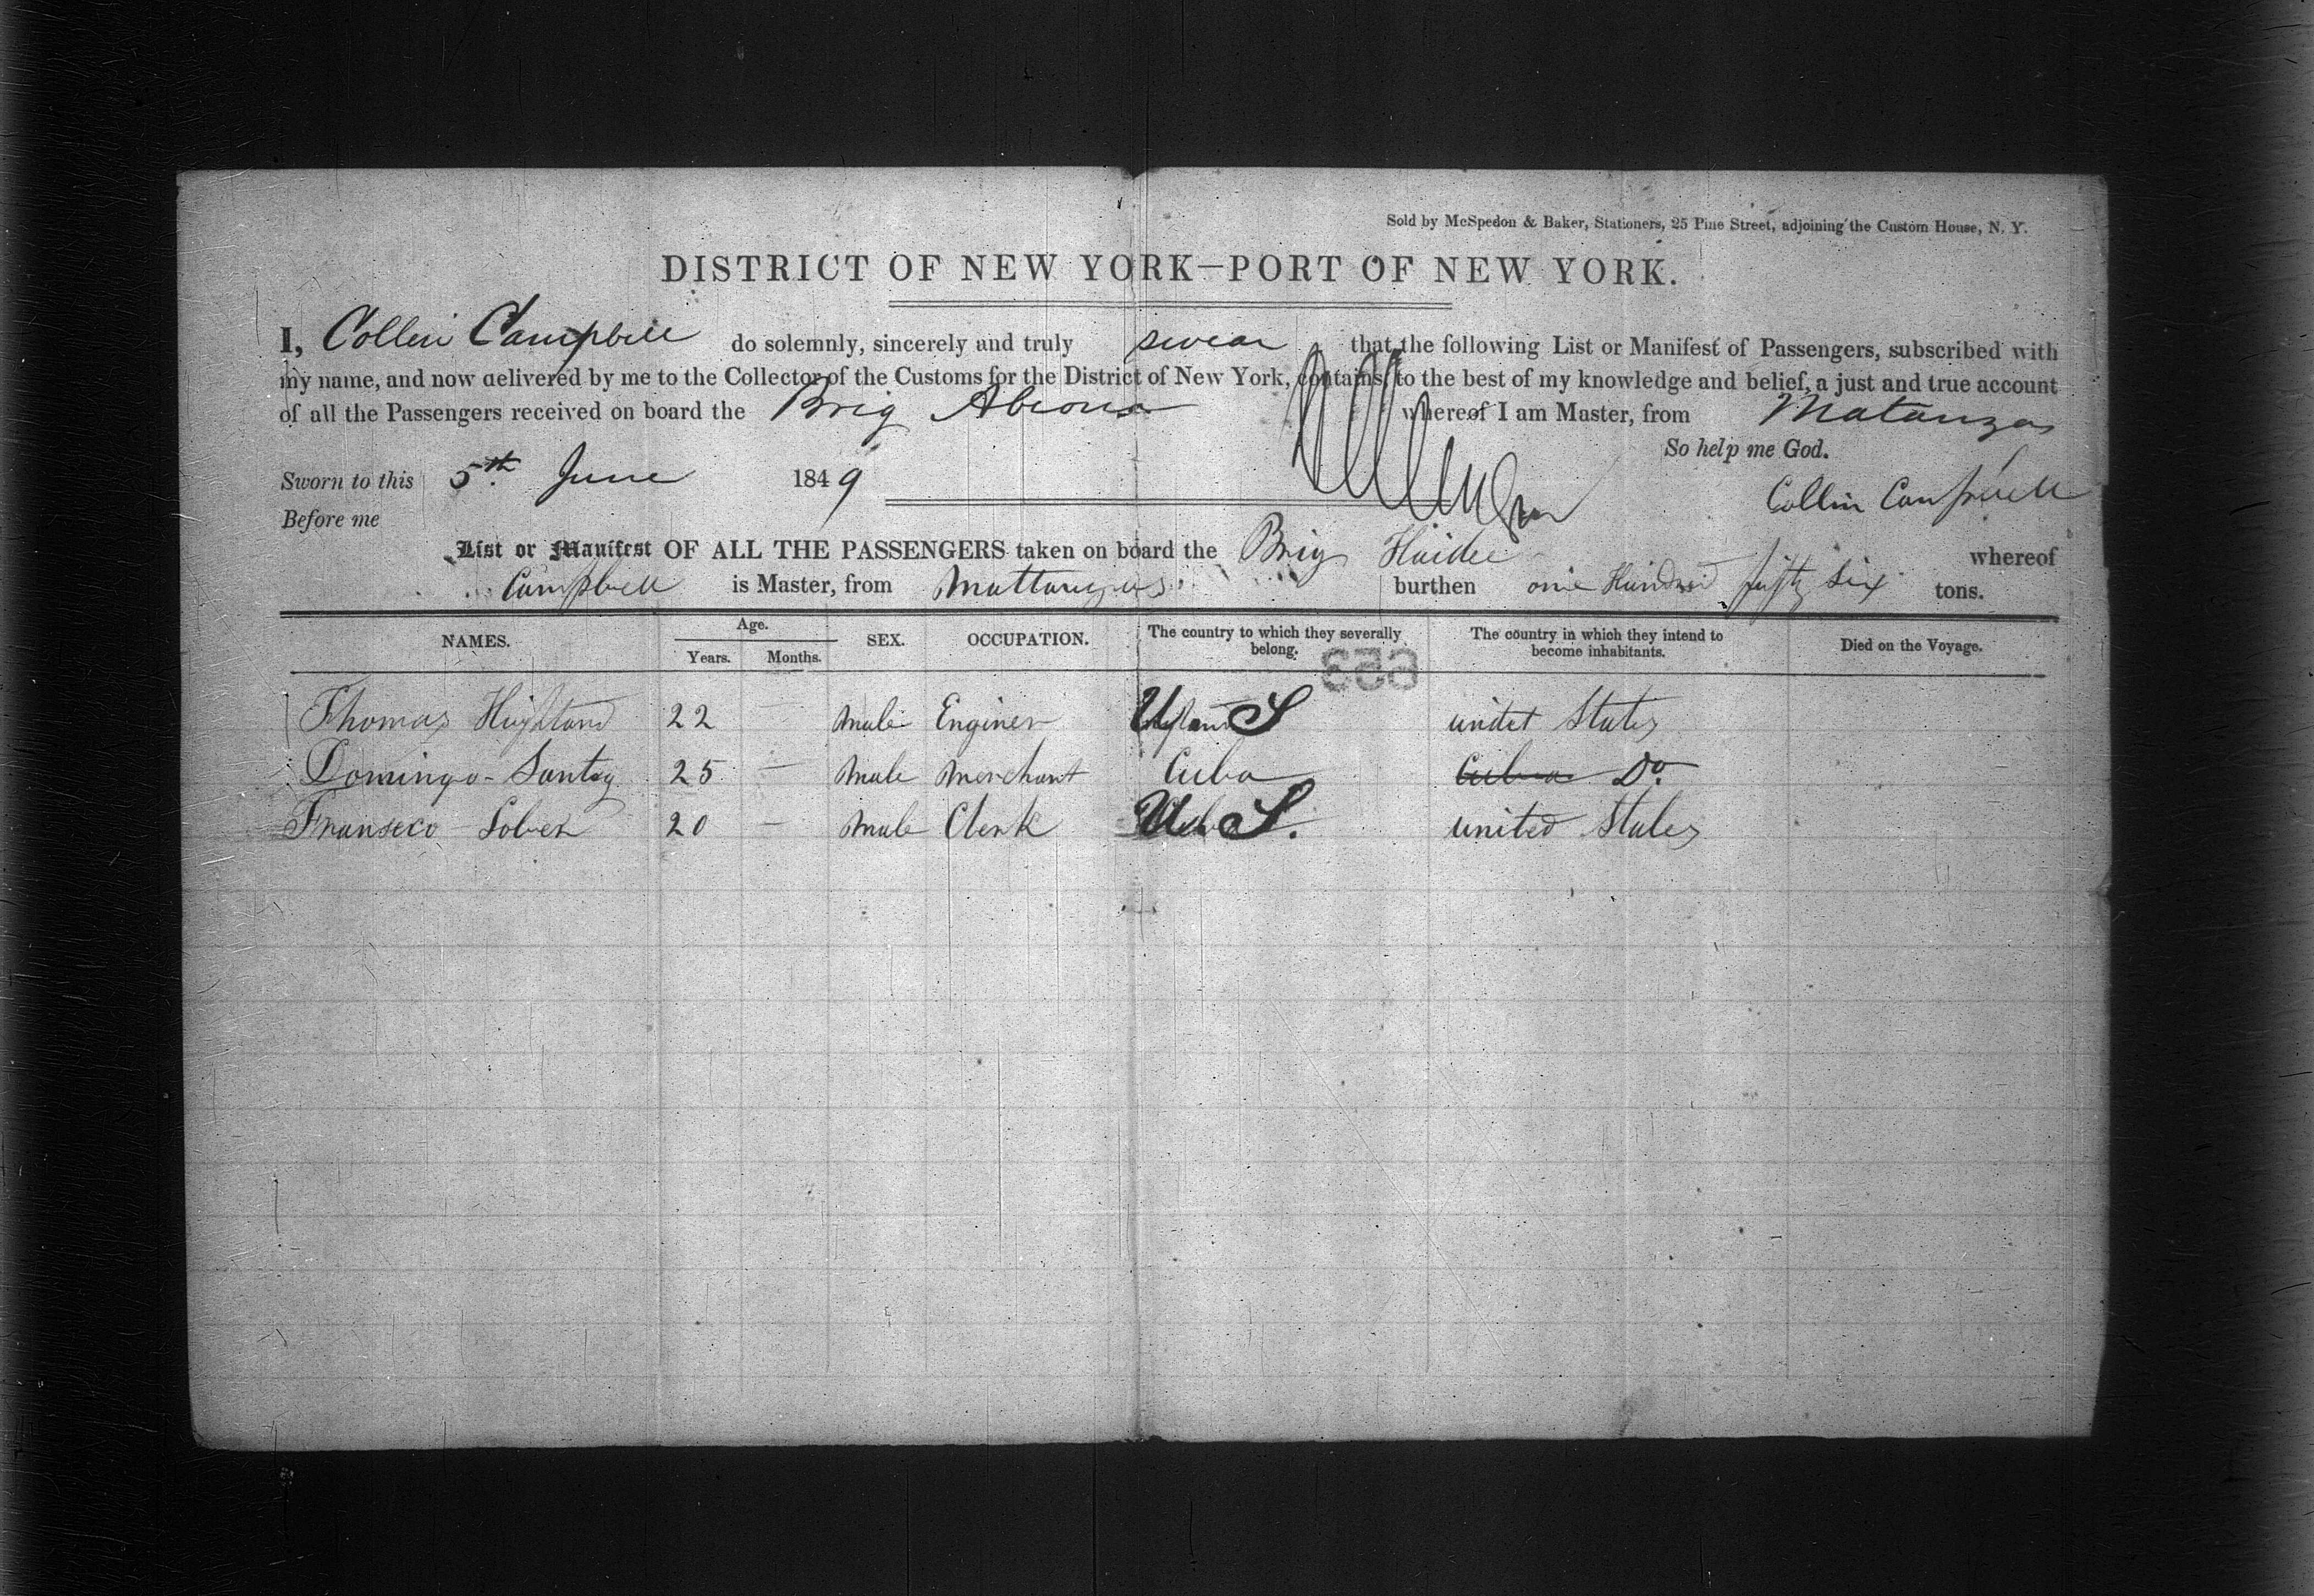 Sold by McSpedon & Baker, Stationers, 25 Pine Street, adjoining the Custom House, N. Y.
DISTRICT OF NEW YORK—PORT OF NEW YORK.
I, Collin Campbell do solemnly, sincerely and truly swear that the following List or Manifest of Passengers, subscribed with
my name, and now delivered by me to the Collector of the Customs for the District of New York, contains, to the best of my knowledge and belief, a just and true account
of all the Passengers received on board the Brig whereof I am Master, from Matanzas
So help me God.
Sworn to this 5th June 1849
Collin Campbell
Before me
List or Manifest OF ALL THE PASSENGERS taken on board the Brig Haidee whereof
Campbell is Master, from burthen one Hundred fifty Six tons.
NAMES. Age. Years. Months. SEX. OCCUPATION. The country to which they severally belong. The country in which they intend to become inhabitants. Died on the Voyage.
653
Thomas 22 male Enginer U S States
Domingo - Santay 25 — male Merchant Cuba Cuba Do.
Franseco Lober 20 — male Clerk U. S. united States